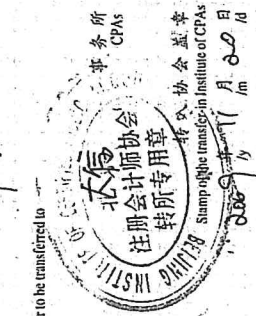 r to be transferred to
大信
事务所
CPAs
BEIJING INSTITUTE OF CE
北
注册会计师协会
转所专用章
转入协会盖章
Stamp of the transfer-in Institute of CPAs
2009 年 11 月 20 日
/y /m /d